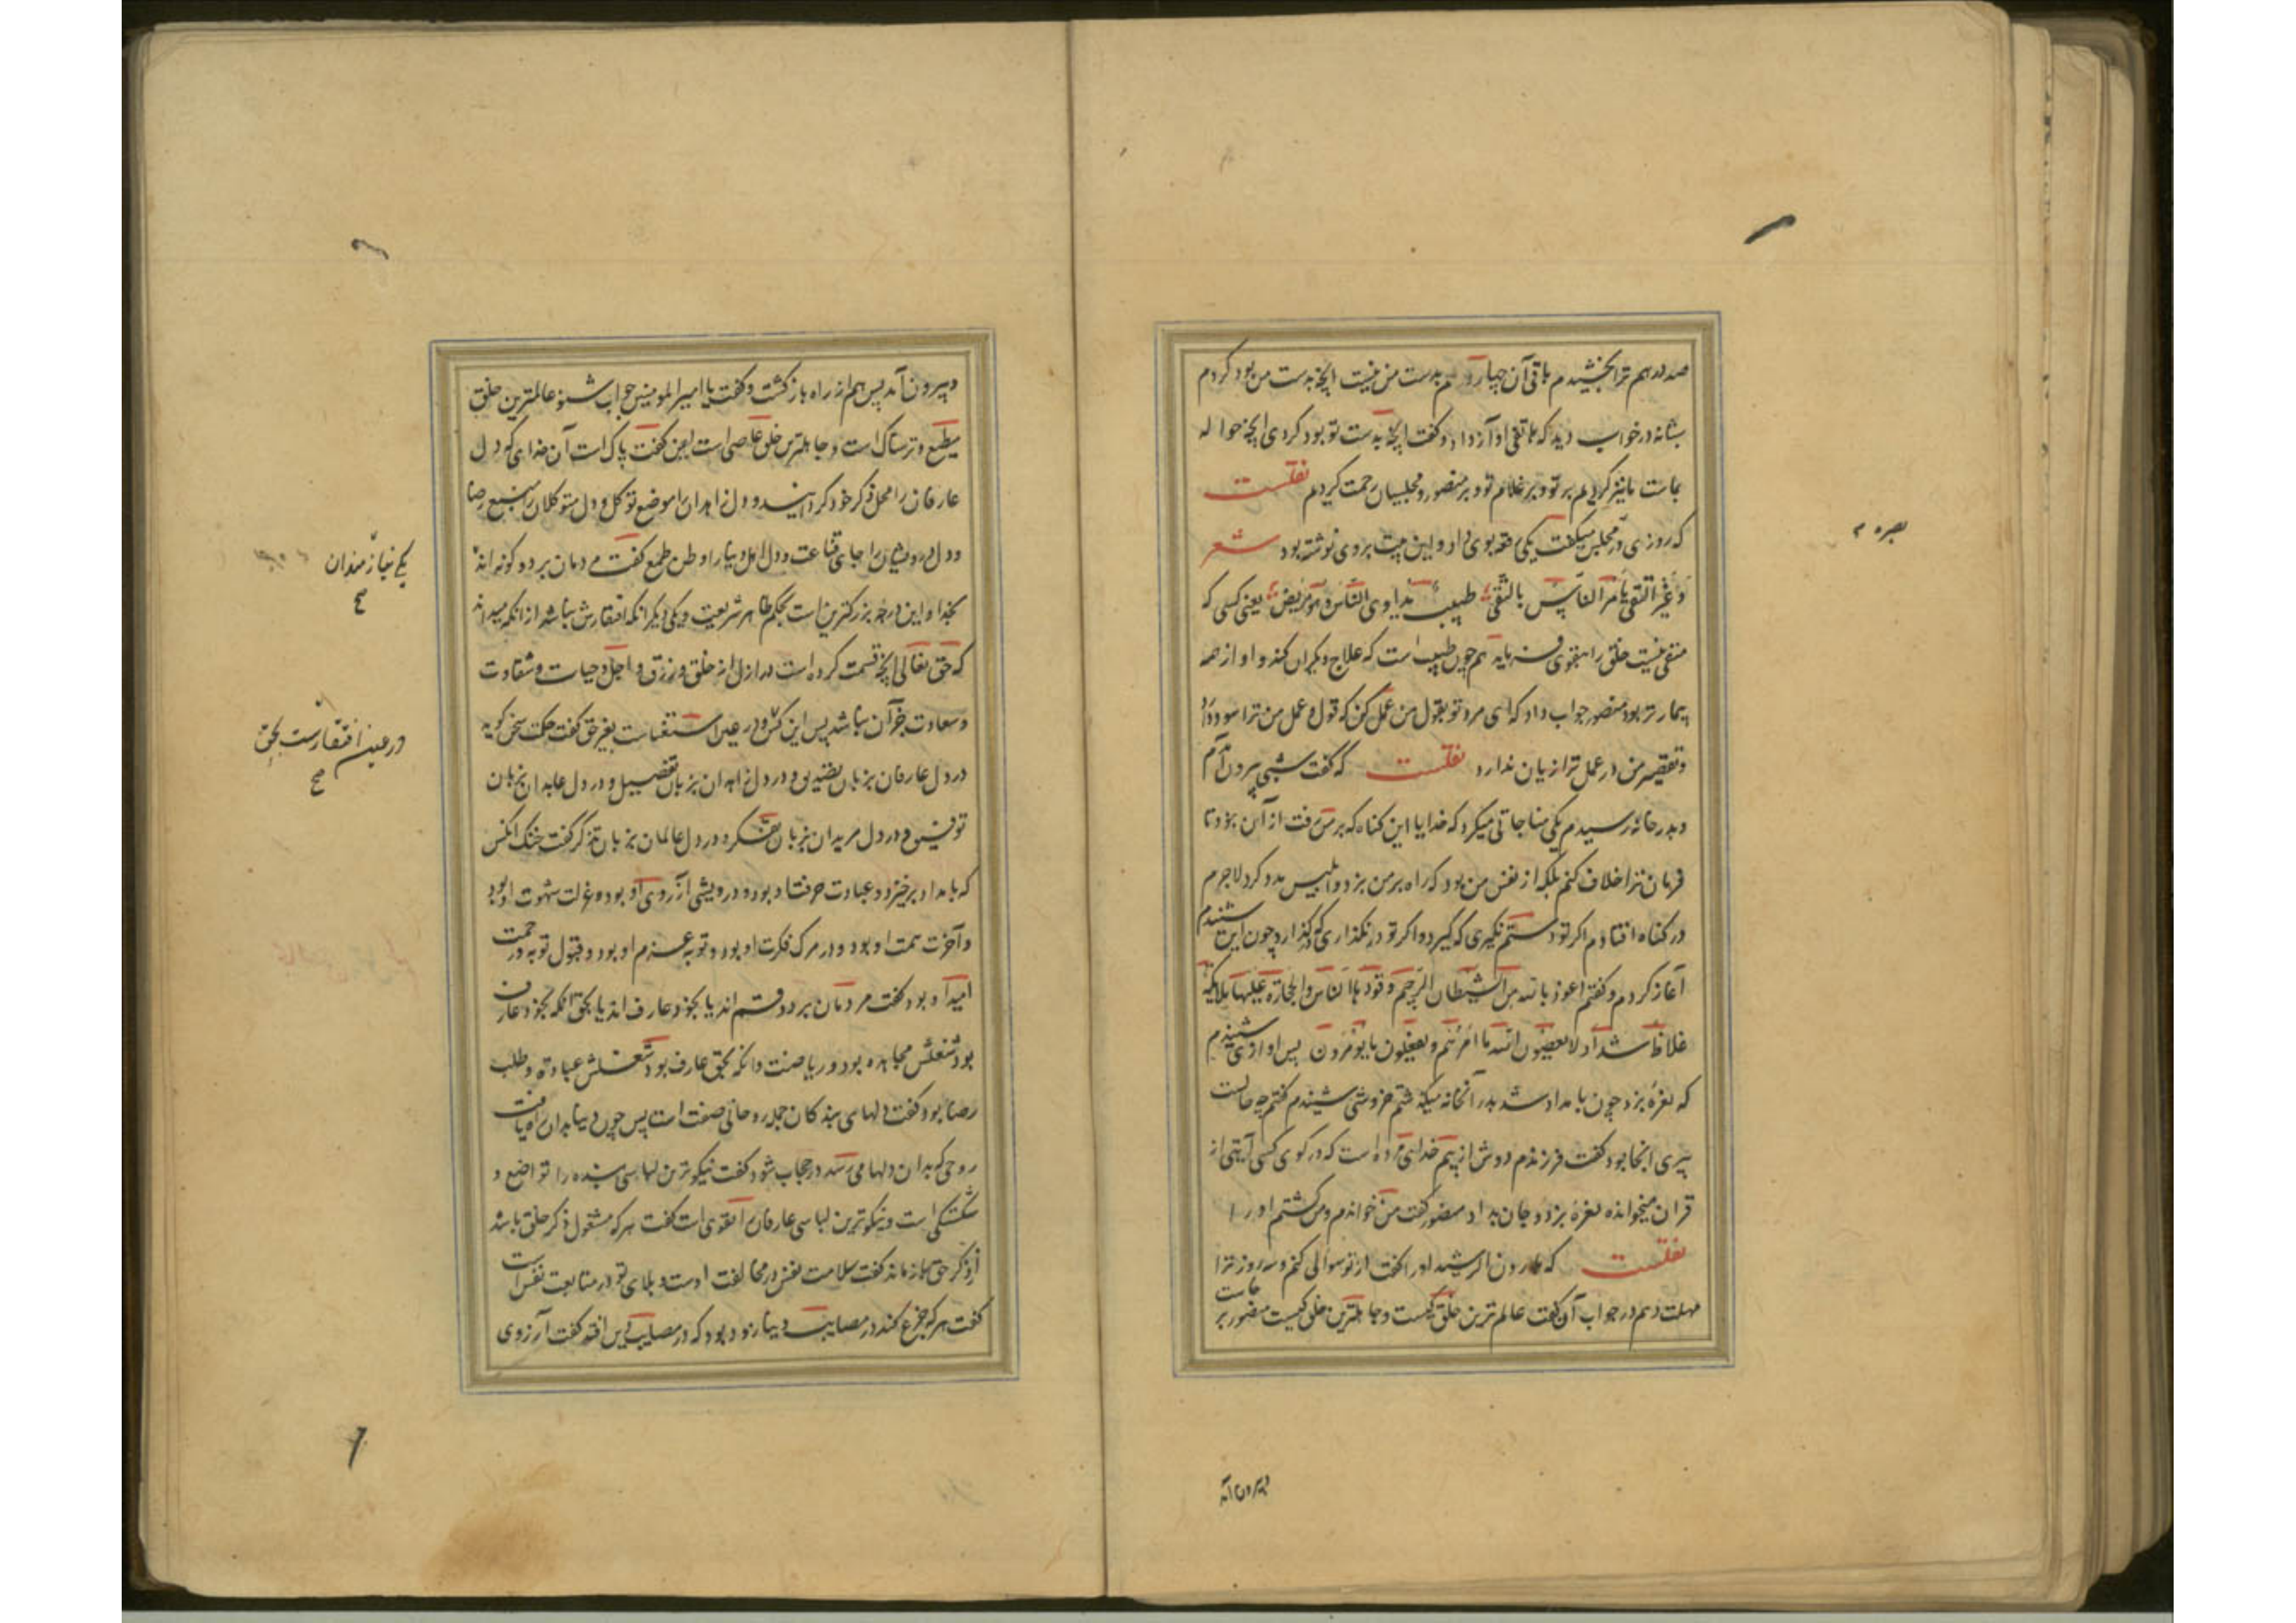 صد درهم ترا بخشیدم باقی آن چهار درم بدست من نیست آنچه بدست من بود کردم
شبانه در خواب دید که هاتفی آواز داد و گفت آنچه بدست تو بود کردی آنچه حواله
بماست ما نیز کردیم بر تو و بر غلام تو و بر منصور و مجلسیان رحمت کردیم نقلست
که روزی در مجلس میگفت یکی رقعه بوی داد و این بیت بروی نوشته بود شعر
وَغَیْرُ التَّقِیِّ یَأْمُرُ النَّاسَ بالتُّقیٰ طبیب یداوی النّاس وهو مریض یعنی کسی که
متقی نیست خلق را بتقوی فرماید همچون طبیب است که علاج دیگران کند و او از همه
بیمارتر بود منصور جواب داد که ای مرد تو بقول من عمل کن که قول و عمل من ترا سود دارد
و تقصیر من در عمل ترا زیان ندارد نقلست که گفت شبی بیرون آمدم
و بدر خانه رسیدم یکی مناجاتی میکرد که خدایا این کناه که بر من رفت از آن نبود تا
فرمان ترا خلاف کنم بلکه از نفس من بود که راه بر من بزد و ابلیس مدد کرد لاجرم
در کناه افتادم اکر تو دستم نکیری که گیرد و اکر تو در نگذاری که گذارد چون این شنیدم
آغاز کردم و گفتم اعوذ بالله من الشیطان الرجیم وقودها الناس والحجارة علیها ملائکة
غلاظ شداد لا یعصون الله ما امرهم و یفعلون ما یؤمرون پس آوازی شنیدم
که نعرۀ بزد چون بامداد شد بدر آنخانه میگذشتم خروشی شنیدم گفتم چه حالست
پیری آنجا بود گفت فرزندم دوش از بیم خدای مرده است که در کوی کسی آیتی از
قرآن میخوانده نعرۀ بزد و جان بداد منصور گفت من خواندم و من کشتم او را
نقلست که هارون الرشید او را گفت از تو سوالی کنم و سه روز ترا
مهلت دهم در جواب آن گفت عالم ترین خلق کیست و جاهلترین خلق کیست منصور برخاست
بصره
و بیرون آمد
و بیرون آمد پس هم از راه باز کشت و گفت یا امیر المومنین جواب شنو عالمترین خلق
مطیع ترسناک است و جاهلترین خلق عاصی ایمن گفت پاک است آن خدای که دل
عارفان را محل ذکر خود کردانید و دل زاهدان را موضع توکل و دل متوکلان را منبع رضا
و دل درویشان را جای قناعت و دل اهل دنیا را وطن طمع گفت مردمان بر دو کونه اند
بخدا و این درجه بزرکترین است بحکم ظاهر شریعت و یکی دیگر آنکه افتقارش نباشد از آنکه میداند
که حق تعالی آنچه قسمت کرده است در ازل از خلق و رزق و اجل و حیات و شقاوت
و سعادت جز آن نباشد پس این کس در عین استغناست بغیر حق گفت حکمت سخن کوید
در دل عارفان بزبان تصدیق و در دل زاهدان بزبان تفضیل و در دل عابدان بزبان
توفیق و در دل مریدان بزبان تفکر و در دل عالمان بزبان تذکر گفت خنک آنکس
که بامداد برخیزد و عبادت حرفت او بود و درویشی آرزوی او بود و عزلت شهوت او بود
و آخرت همت او بود و در مرک فکرت او بود و توبه عزم او بود و قبول توبه و رحمت
امید او بود گفت مردمان بر دو قسم اند یا بخود عارف اند یا بحق آنکه بخود عارف
بود شغلش مجاهده بود و ریاضت و آنکه بحق عارف بود شغلش عبادت و طلب
رضا بود گفت دلهای بندکان جمله روحانی صفت است پس چون دنیا بدان راه یافت
روحی که بدان دلها می رسد در حجاب شود گفت نیکوترین لباسی بنده را تواضع و
شکستگی است و نیکوترین لباسی عارفان را تقوی است گفت هر که مشغول ذکر خلق باشد
از ذکر حق باز ماند گفت سلامت نفس در مخالفت اوست و بلای تو در متابعت نفس است
گفت هر که جزع کند در مصایب دنیا زود بود که در مصایب دین افتد گفت آرزوی
یکی نیازمندان
صح
در عین افتقارست بحق
صح